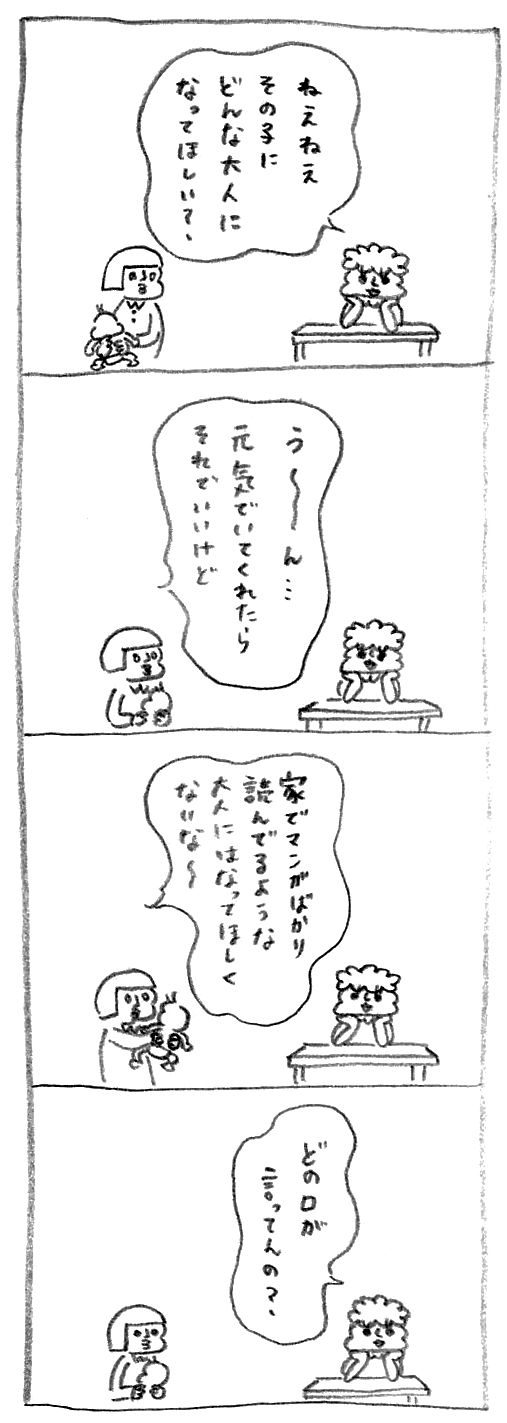 ねえねえ
その子に
どんな大人に
なってほしい?、
う〜〜ん…
元気でいてくれたら
それでいいけど
家でマンガばかり
読んでるような
大人にはなってほしく
ないな〜
どの口が
言ってんの?、